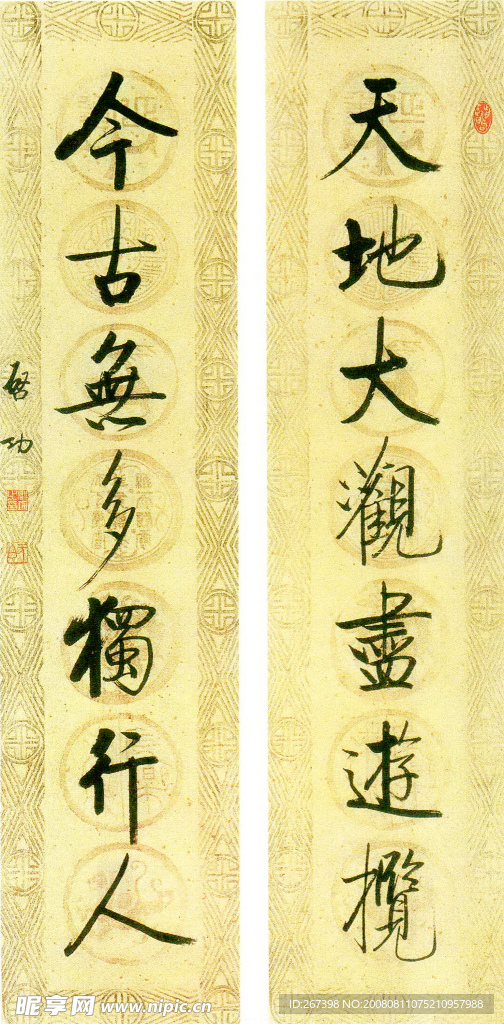 天地大觀盡遊攬
今古無多獨行人
啓功
昵享网 www.nipic.cn
ID:267398 NO:20080811075210957988